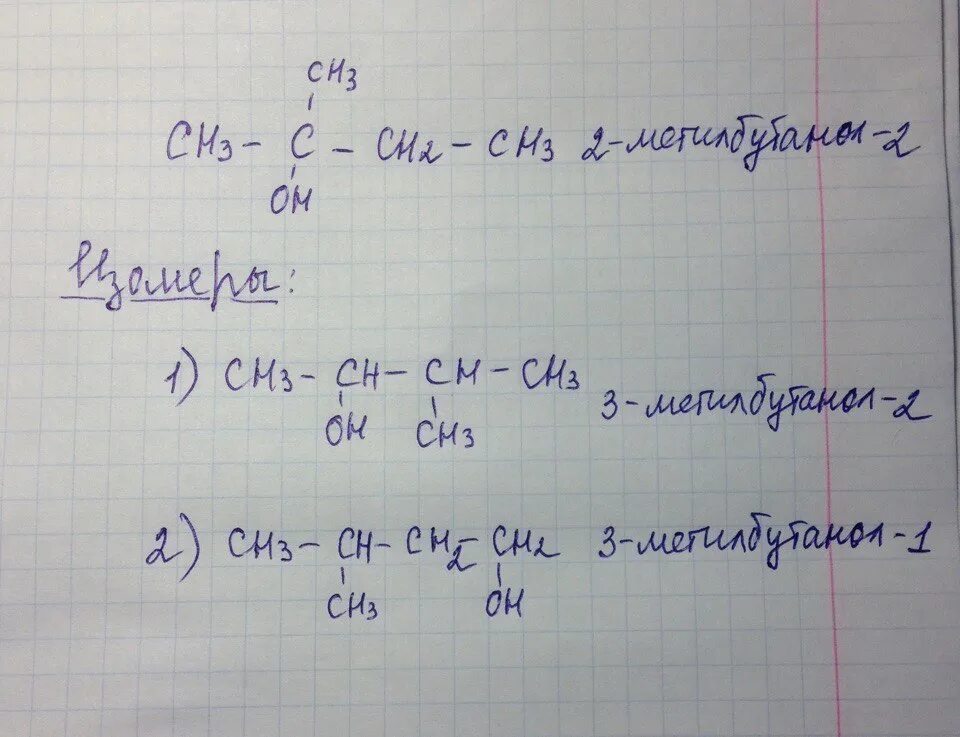 CH3
CH3 - C - CH2 - CH3 2-метилбутанол-2
OH
Изомеры:
1) CH3 - CH - CH - CH3
3-метилбутанол-2
OH CH3
2) CH3 - CH - CH2 - CH2 3-метилбутанол-1
CH3 OH